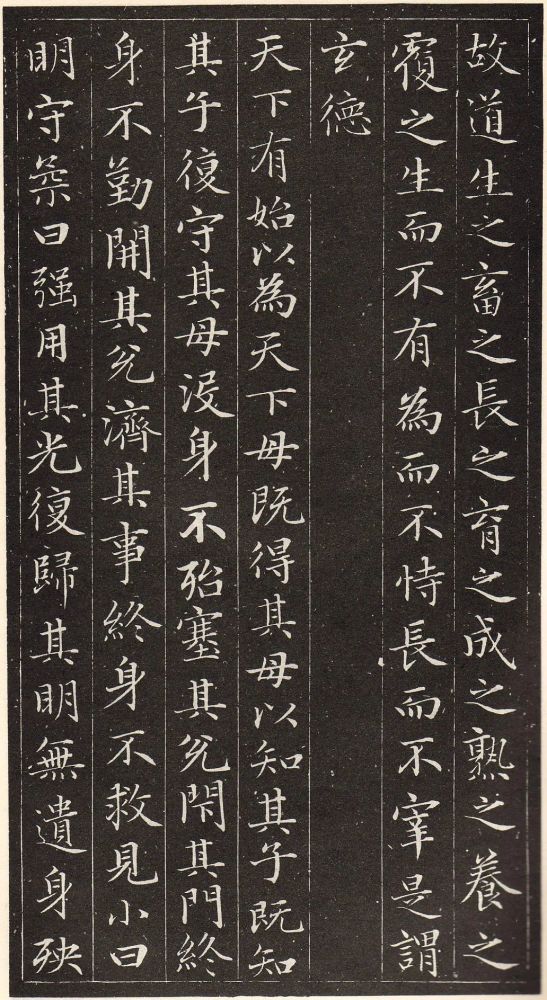 故道生之畜之長之育之成之熟之養之
覆之生而不有為而不恃長而不宰是謂
玄德
天下有始以為天下母既得其母以知其子既知
其子復守其母沒身不殆塞其兊閇其門終
身不勤開其兊濟其事終身不救見小曰
明守柔曰强用其光復歸其明無遺身殃